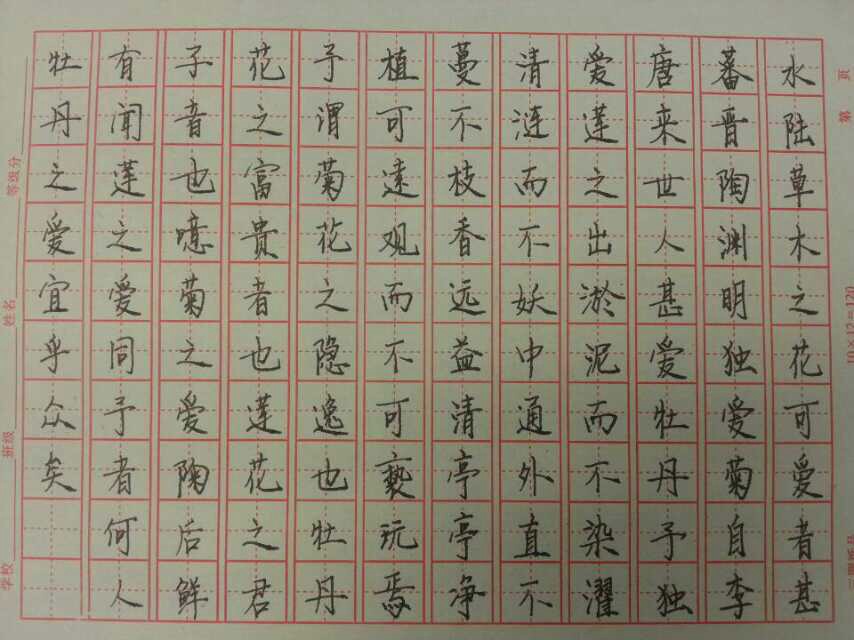 水陆草木之花可爱者甚
蕃晋陶渊明独爱菊自李
唐来世人甚爱牡丹予独
爱莲之出淤泥而不染濯
清涟而不妖中通外直不
蔓不枝香远益清亭亭净
植可遠观而不可亵玩焉
予谓菊花之隐逸也牡丹
花之富貴者也莲花之君
子者也噫菊之爱陶后鲜
有闻莲之爱同予者何人
牡丹之爱宜乎众矣
第 页
10×12=120
学校 班级 姓名 等级分